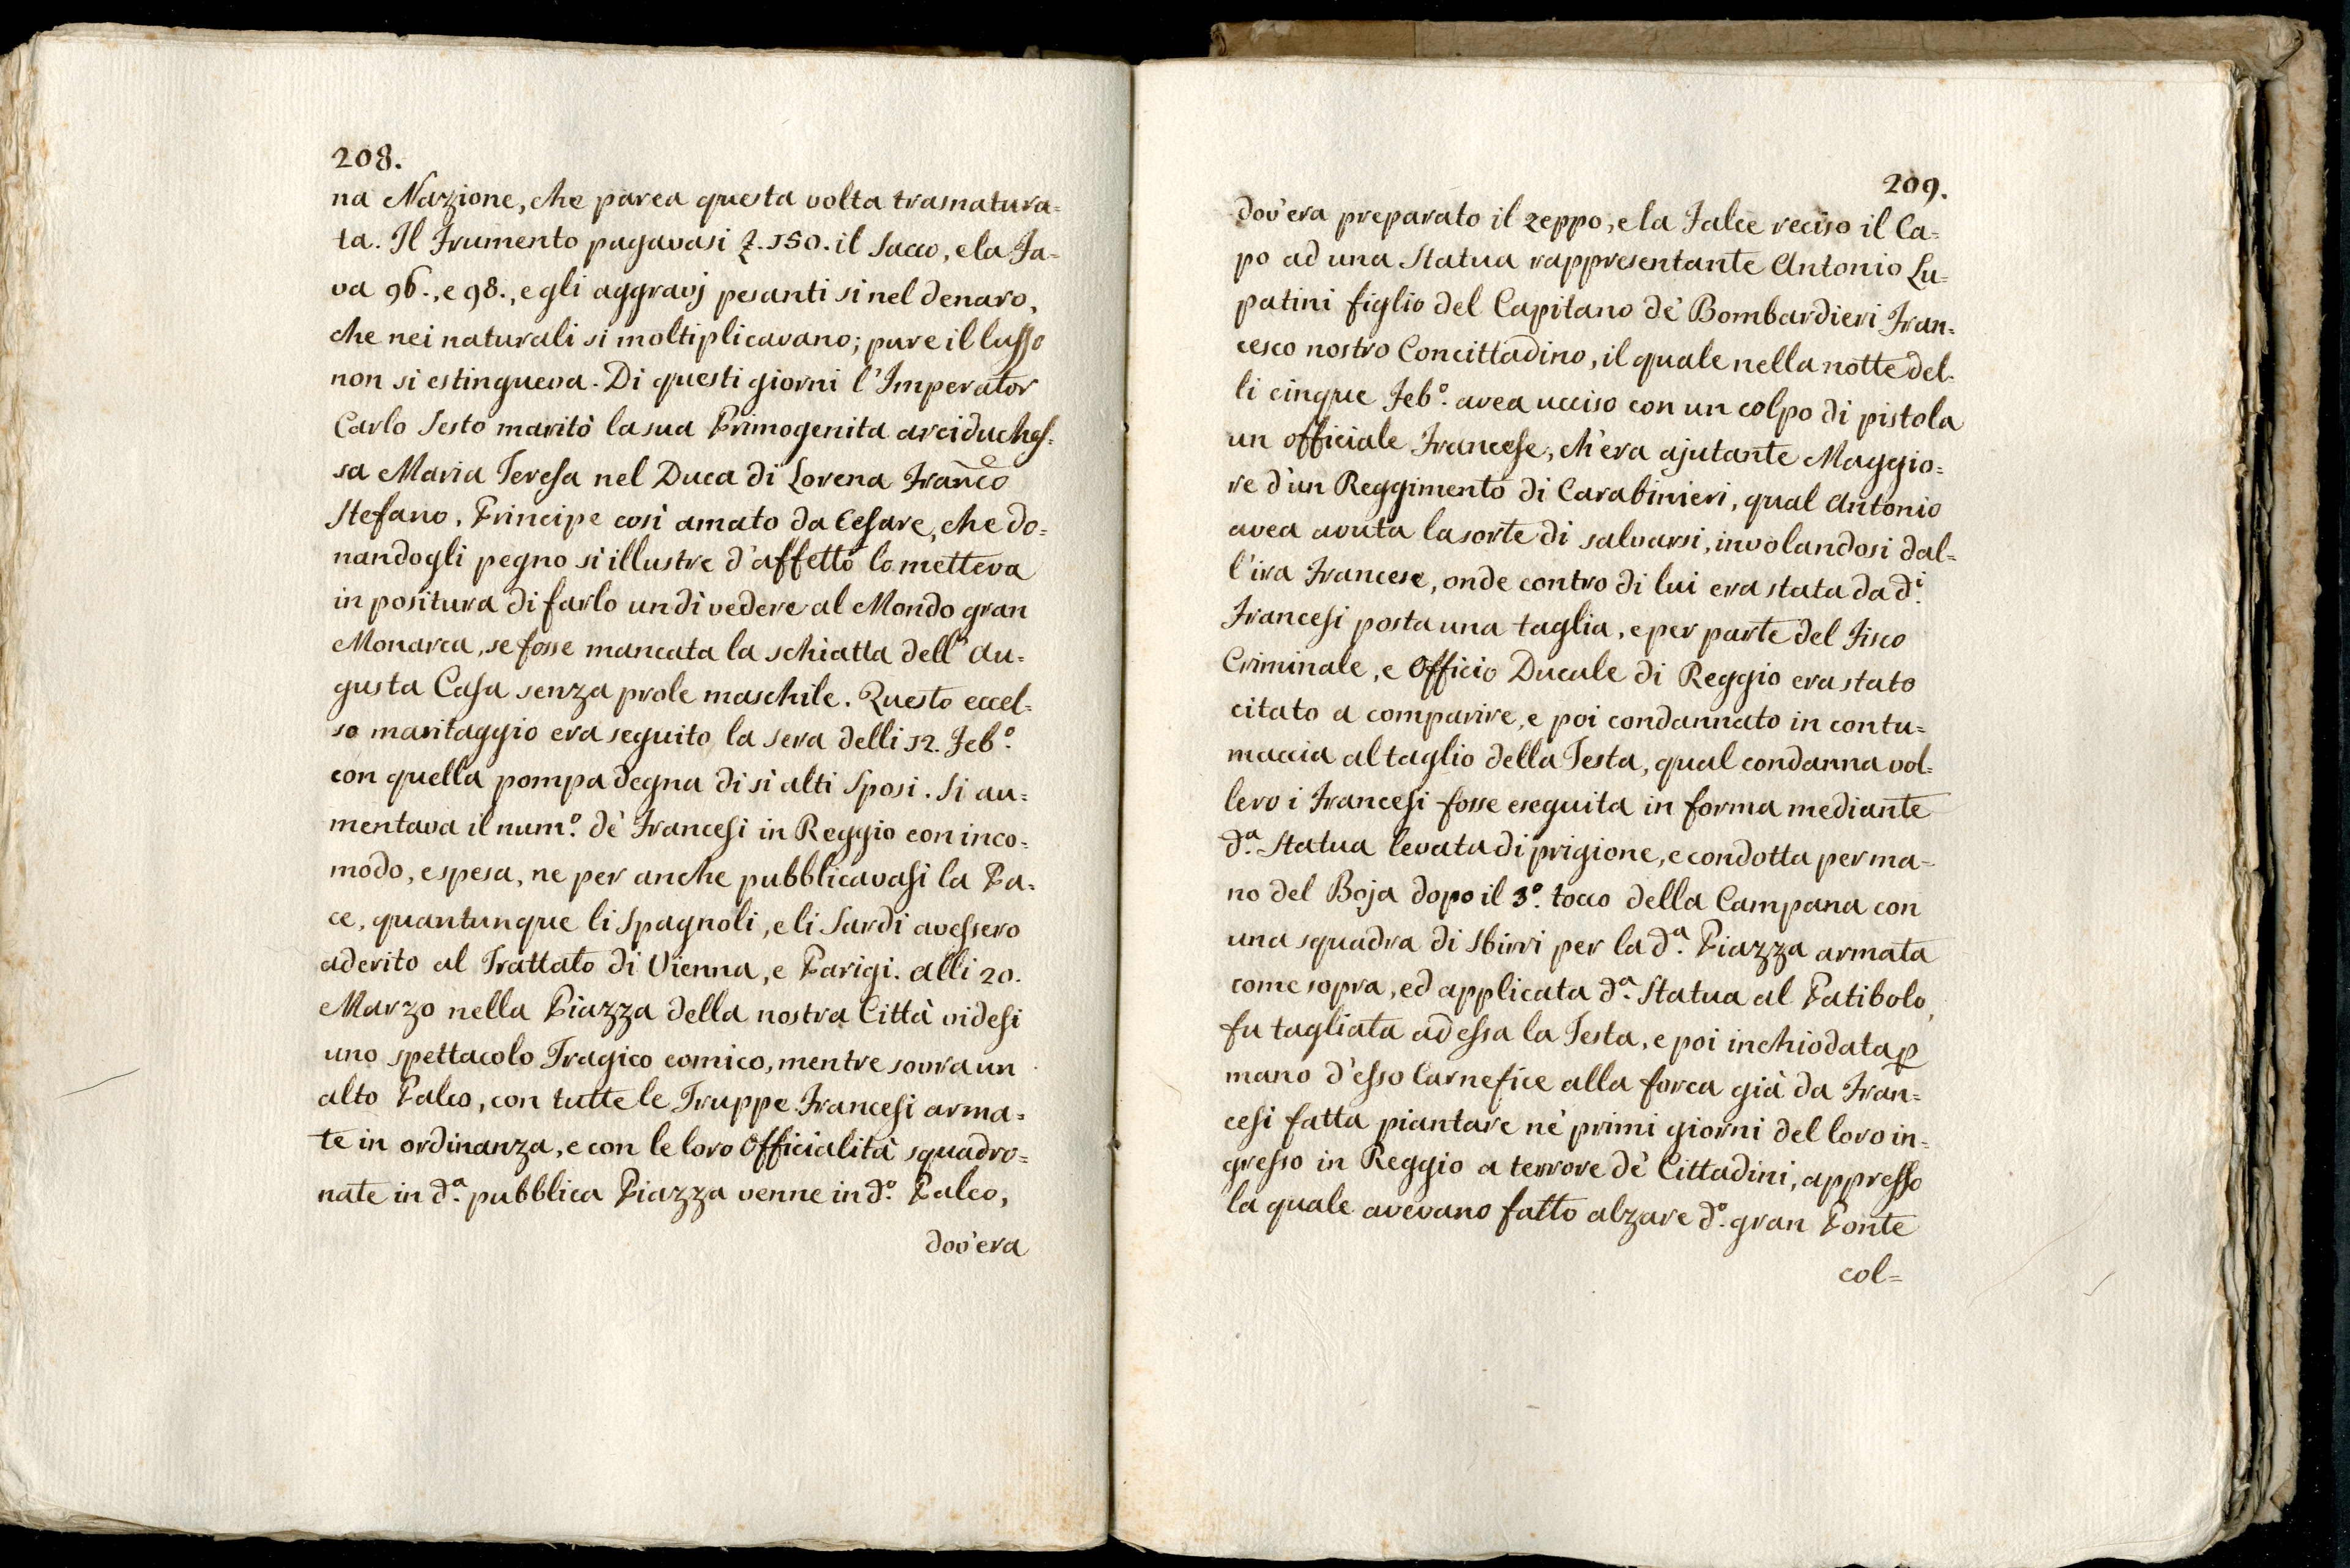 208.
na Nazione, che parea questa volta trasnatura=
ta. Il Frumento pagavasi £. 150. il Sacco, e la Fa=
va 96., e 98., e gli aggravj pesanti si nel denaro,
che nei naturali si moltiplicavano; pure il lusso
non si estingueva. Di questi giorni l'Imperator
Carlo Sesto maritò la sua Primogenita arciduches=
sa Maria Teresa nel Duca di Lorena Franc̃o
Stefano, Principe così amato da Cesare, che do=
nandogli pegno sì illustre d'affetto lo metteva
in positura di farlo un dì vedere al Mondo gran
Monarca, se fosse mancata la schiatta dell'Au=
gusta Casa senza prole maschile. Questo eccel=
so maritaggio era seguito la sera delli 12. Febº.
con quella pompa degna di sì alti Sposi. Si au=
mentava il numº. dè Francesi in Reggio con inco=
modo, e spesa, ne per anche pubblicavasi la Pa=
ce, quantunque li Spagnoli, e li Sardi avessero
aderito al Trattato di Vienna, e Parigi. alli 20.
Marzo nella Piazza della nostra Città videsi
uno spettacolo Tragico comico, mentre sovra un
alto Palco, con tutte le Truppe Francesi arma=
te in ordinanza, e con le loro Officialità squadro=
nate in dª. pubblica Piazza venne in dº. Palco,
dov'era
209.
dov'era preparato il zeppo, e la Falce reciso il Ca=
po ad una Statua rappresentante Antonio Lu=
patini figlio del Capitano dè Bombardieri Fran=
cesco nostro Concittadino, il quale nella notte del=
li cinque Febº. avea ucciso con un colpo di pistola
un officiale Francese, ch'era ajutante Maggio=
re d'un Reggimento di Carabinieri, qual Antonio
avea avuta la sorte di salvarsi, involandosi dal=
l'ira Francese, onde contro di lui era stata da dⁱ.
Francesi posta una taglia, e per parte del Fisco
Criminale, e Officio Ducale di Reggio era stato
citato a comparire, e poi condannato in contu=
maccia al taglio della Testa, qual condanna vol=
lero i Francesi fosse eseguita in forma mediante
dª. Statua levata di prigione, e condotta per ma=
no del Boja dopo il 3º. tocco della Campana con
una squadra di Sbirri per la dª. Piazza armata
come sopra, ed applicata dª. Statua al Patibolo,
fu tagliata ad essa la Testa, e poi inchiodata ꝑ
mano d'esso Carnefice alla forca già da Fran=
cesi fatta piantare nè primi giorni del loro in=
gresso in Reggio a terrore dè Cittadini, appresso
la quale avevano fatto alzare dº. gran Ponte
col=